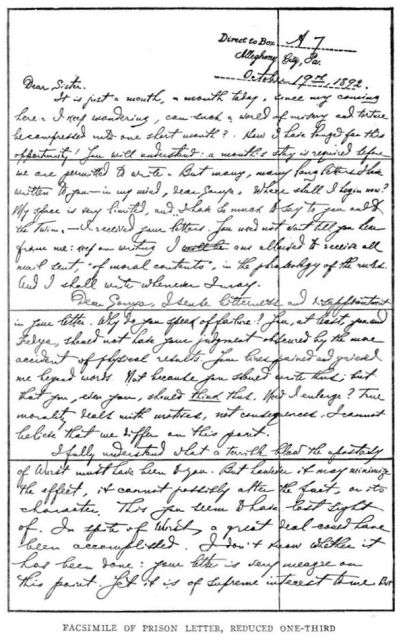 Direct to Box A 7
Allegheny City, Pa.
October 19th, 1892.
Dear Sister.
It is just a month, a month today, since my coming
here. I keep wondering, can such a world of misery and torture
be compressed into one short month? How I have longed for this
opportunity! You will understand: a month's stay is required before
we are permitted to write. But many, many long letters I have
written to you — in my mind, dear Sonya. Where shall I begin now?
My space is very limited, and I have so much to say to you and
the Twin. — I received your letters. You need not wait till you hear
from me: keep on writing. I am allowed to receive all
mail sent, "of moral contents", in the phraseology of the rules.
And I shall write whenever I may.
Dear Sonya, I sense bitterness and disappointment
in your letter. Why do you speak of failure? You, at least, you and
Fedya, should not have your judgment obscured by the mere
accident of physical results. Your lines pained and grieved
me beyond words. Not because you should write thus; but
that you, even you, should think thus. Need I enlarge? True
morality deals with motives, not consequences. I cannot
believe that we differ on this point.
I fully understand what a terrible blow the apostasy
of Wurst must have been to you. But however it may minimize
the effect, it cannot possibly alter the fact, or its
character. This you seem to have lost sight
of. In spite of Wurst, a great deal could have
been accomplished. I don't know whether it
has been done: your letter is very meagre on
this point. Yet it is of supreme interest to me. But
FACSIMILE OF PRISON LETTER, REDUCED ONE-THIRD